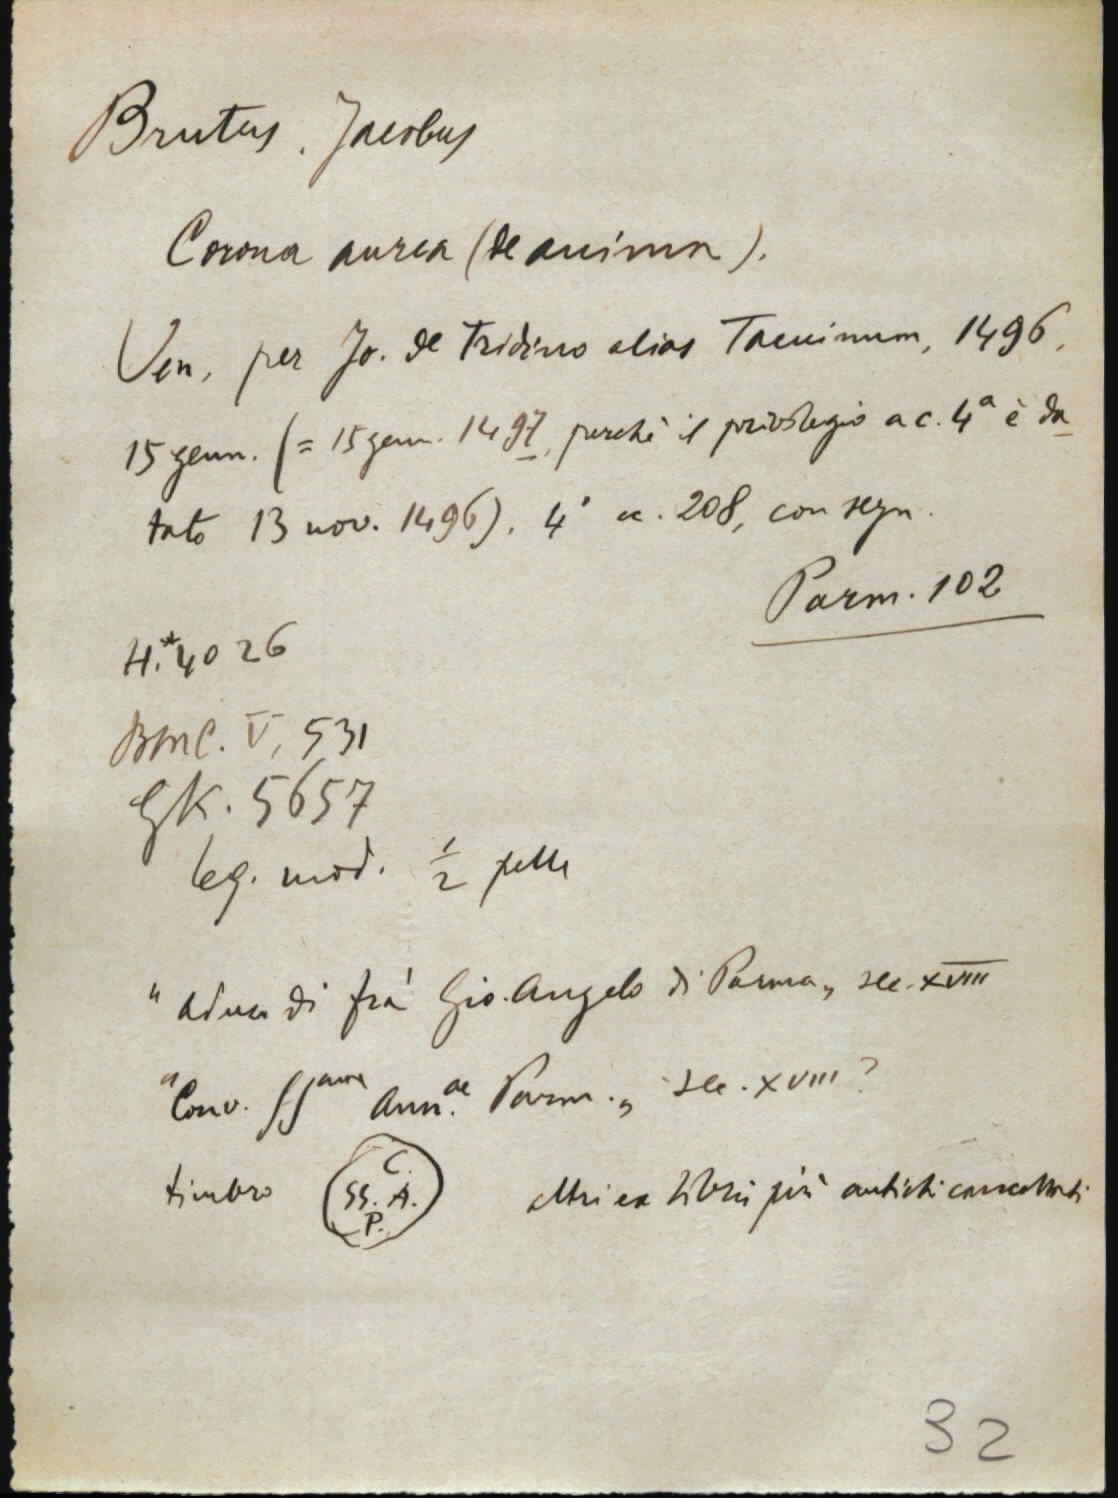 Brutus, Jacobus
Corona aurea (de anima).
Ven., per Jo. de Tridino alias Tacuinum, 1496,
15 genn. (= 15 genn. 1497, perchè il privilegio a c. 4ª è da
tato 13 nov. 1496). 4° cc. 208, con segn.
Parm. 102
H.*4026
BMC. V, 531
GK. 5657
leg. mod. 1/2 pelle
" di frá Gio. Angelo di Parma „ sec. XVIII
"Conv. SSmae Ann.ae Parm. „ sec. XVIII?
timbro C. SS. A. P. altri ex libris più antichi cancellati
32